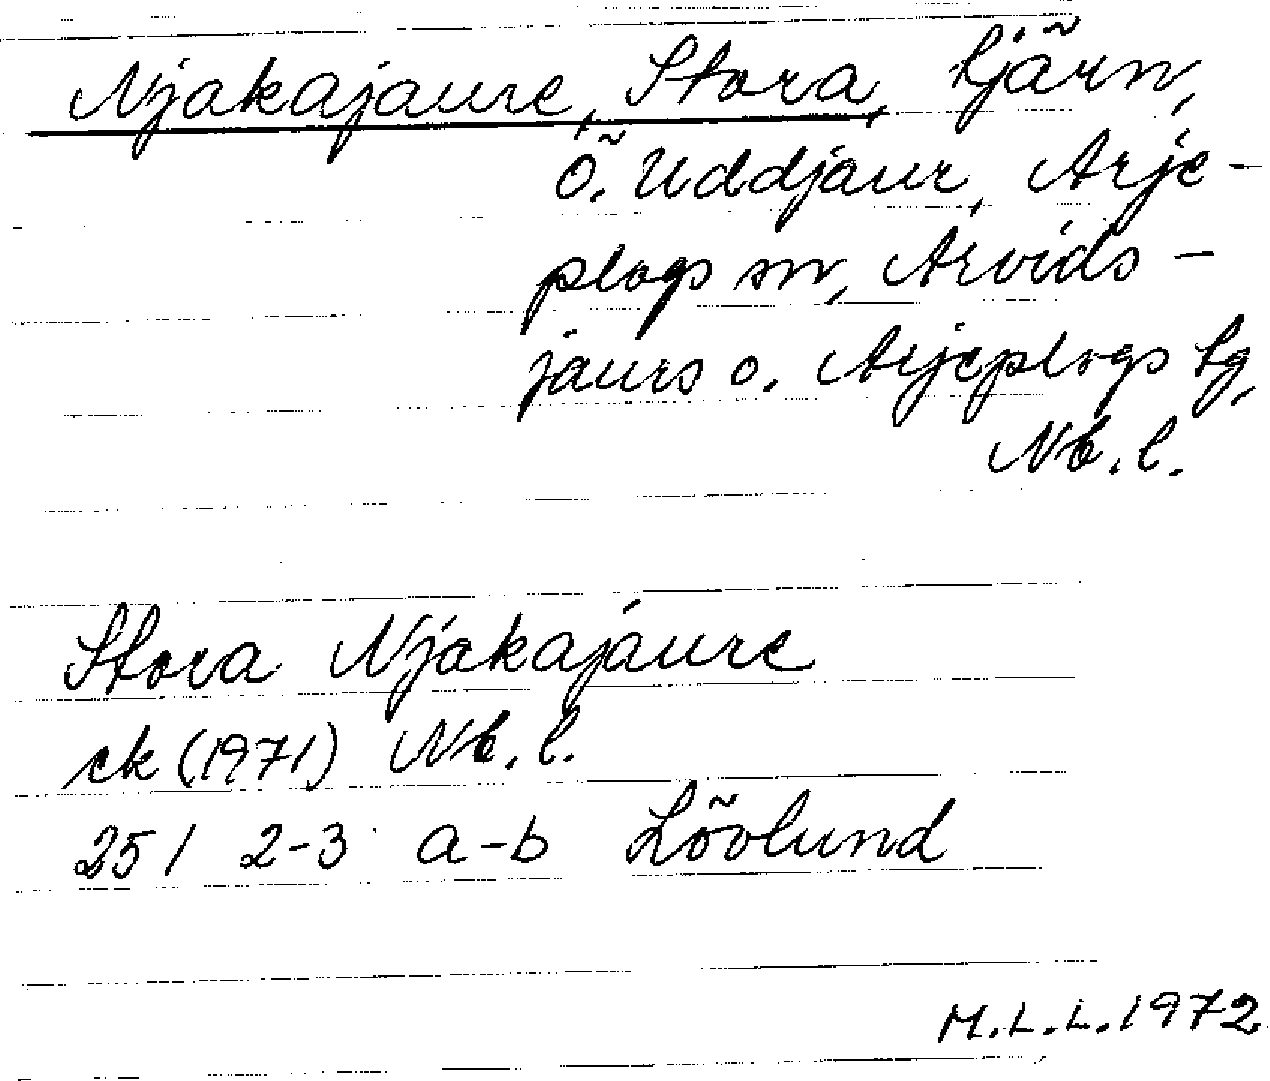 Njakajaure, Stora, tjärn,
Ö. Uddjaur, Arje-
plogs sn, Arvids-
jaurs o. Arjeplogs tg,
Nb. l.
Stora Njakajaure
ek (1971) Nb. l.
25 I 2-3 a-b Lövlund
M.L.L. 1972.